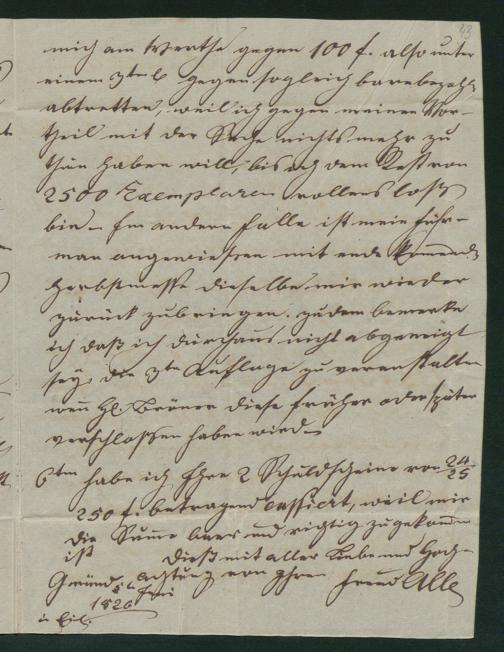 43
mich am Werthe gegen 100 f. also unter
einem 3tel gegen sogleich baare bezahl.
abtretten, weil ich gegen meinen Vor-
theil mit der Sache nichts mehr zu
thun haben will, bis ich dem Rest von
2500 Exemplaren vollens loß
bin. Im andern Falle ist mein Fuhr-
man angewiesen mit ende kommend
Herbstmesse dieselbe mir wieder
zurück zubringen. zudem bemerke
ich daß ich durchaus nicht abgeneigt
sey, die 3te Auflage zu veranstalten
wen H. Brönner diese früher oder später
verschlossen haben wird.
6tens habe ich Ihre 2 Schuldscheine von 24/25
250 f. betragend cassiert, weil mir
die Sume baar und richtig zugekomen
ist Dieß mit aller Liebe und Hoch-
Gmünd achtung von Ihrem Freund Alle
Juni
1826
in Eil.